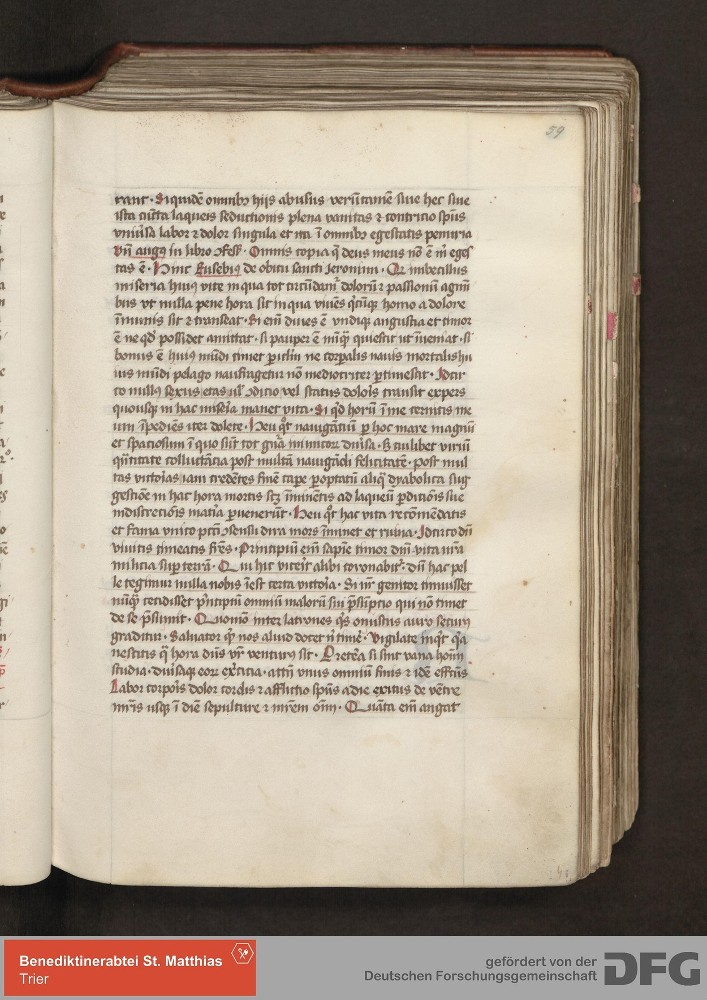 59
rant · Siquidē omnibꝫ hijs abusus verūtamē siue hec siue
ista cūcta laqueis seductionis plena vanitas ⁊ contricio spūs
vniūsa labor ⁊ dolor singula et ita ī omnibꝫ egestatis penuria
Vn̄ augꝰ in libro Omnis copia q̄ deus meus nō ē m̄ eges
tas ē · Hinc Eusebiꝰ de obitu sancti Jeronimi · Oꝛ imbecillus
miseria huiꝰ vite in qua tot circūdamꝛ dolorū ⁊ passionū agm̄
bus vt nulla pene hora sit in qua viuēs homo a dolore
īmunis sit ⁊ transeat · Si em̄ diues ē vndiqꝫ angustia et timor
ē ne qd̄ possidet amittat · si pauper ē nūqꝫ quiescit vt īueniat · si
bonus ē huiꝰ mūdi timet piclm̄ ne corpalis nauis mortalis hu
ius mūdi pelago naufragetur nō mediocriter ptimescit · Idcir
co nullꝰ sexus etas ul̄ ↄdicio vel status doloris transit expers
quousqꝫ in hac misera manet vita · Si qd̄ horū ī me cernitis me
um īpediēs iter dolete · Heu qͦt nauigātiū p hoc mare magnū
et spaciosum ī quo sūt tot gn̄a inimicoꝝ diūsa · Sꝫ cuiuslibet viriū
qūtitate colluctācia post multā nauigādi felicitatē · post mul
tas victorias iam credētes finē cape poptatū aliqͣ dyabolica sug
gestiōe in hac hora mortis scꝫ īminētis ad laqueū pdiciōis sue
indiscrecionis matia puenerūt · Heu qͦt hac vita recōmēdatis
et fama vnico pctī ↄsensu dira mors īminet et ruina · Idcirco dū
viuitis timeatis frēs · Principiū em̄ sapīe timor dn̄i vita nr̄a
milicia sup terrā · Qui hic vicerit alibi coronabitꝛ · dū hac pel
le tegimur nulla nobis īest certa victoria · Si nr̄ genitor timuisset
nūqꝫ cecidisset pͥncipiū omniū malorū sui psūpcio qui nō timet
de se psūmit · Quomō inter latrones qͥs onustus auro securꝰ
graditur · Saluator qͥp̄ nos aliud docet n̄ timē · Vigilate inqͥt qͣ
nescitis q̄ hora dn̄s vr̄ venturꝰ sit · Pretea si sint vana hoīm
studia · diūsaqꝫ eoꝝ exercitia · attn̄ vnus omniū finis ⁊ idē effcūs
Labor corporis dolor cordis ⁊ afflictio spūs a die exitus de vētre
mr̄is usqꝫ ī diē sepulture ⁊ mr̄em om̄ · Quāta em̄ angat
Benediktinerabtei St. Matthias
Trier
gefördert von der
Deutschen Forschungsgemeinschaft
DFG